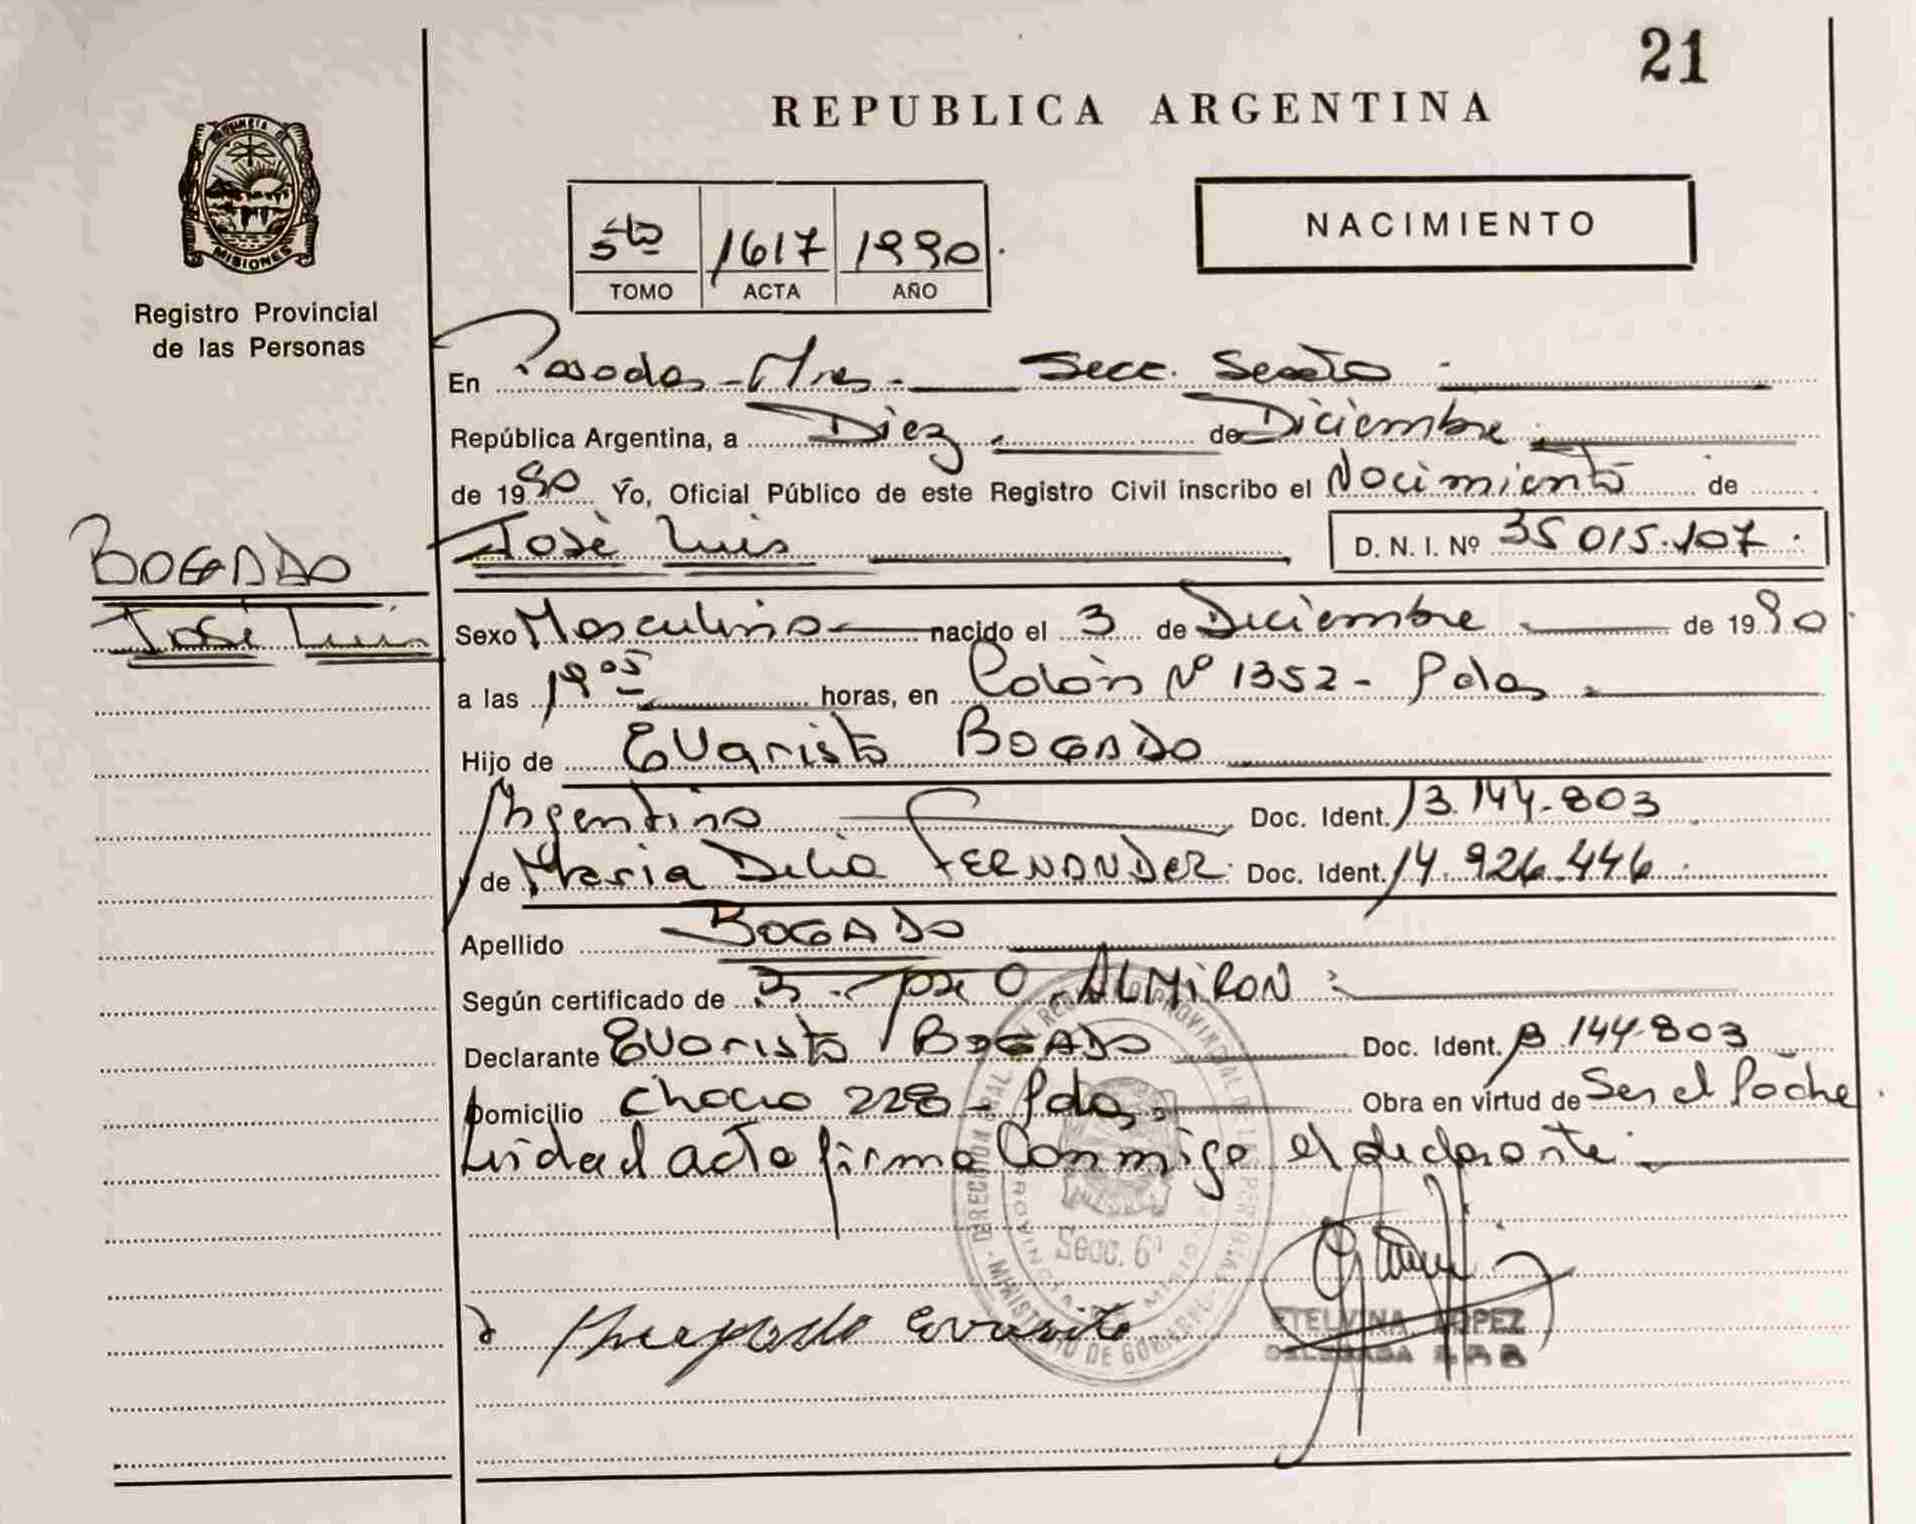 21
REPUBLICA ARGENTINA
PROVINCIA DE
MISIONES
Registro Provincial
de las Personas
5to 1617 1990.
TOMO ACTA AÑO
NACIMIENTO
En Posadas - Mnes - Secc. Sexta
República Argentina, a Diez de Diciembre
de 1990 Yo, Oficial Público de este Registro Civil inscribo el Nacimiento de
BOGADO
José Luis
José Luis D. N. I. Nº 35 015.107.
Sexo Masculino nacido el 3 de Diciembre de 1990.
a las 19 05 horas, en Colón Nº 1352 - Pdas
Hijo de Evaristo BOGADO
Argentino Doc. Ident. 13.144.803
y de María Delia FERNANDEZ. Doc. Ident. 14.926.446.
Apellido BOGADO
Según certificado de José O. ALMIRON
Declarante Evaristo BOGADO Doc. Ident. 13.144.803
Domicilio Chaco 228 - Pdas. Obra en virtud de Ser el Padre.
Leída el acta firma Conmigo el declarante.
DIRECCION GRAL. DEL REGISTRO PROVINCIAL DE LAS PERSONAS
MINISTERIO DE GOBIERNO
Secc. 6ª
Evaristo
ETELVINA LOPEZ
DELEGADA